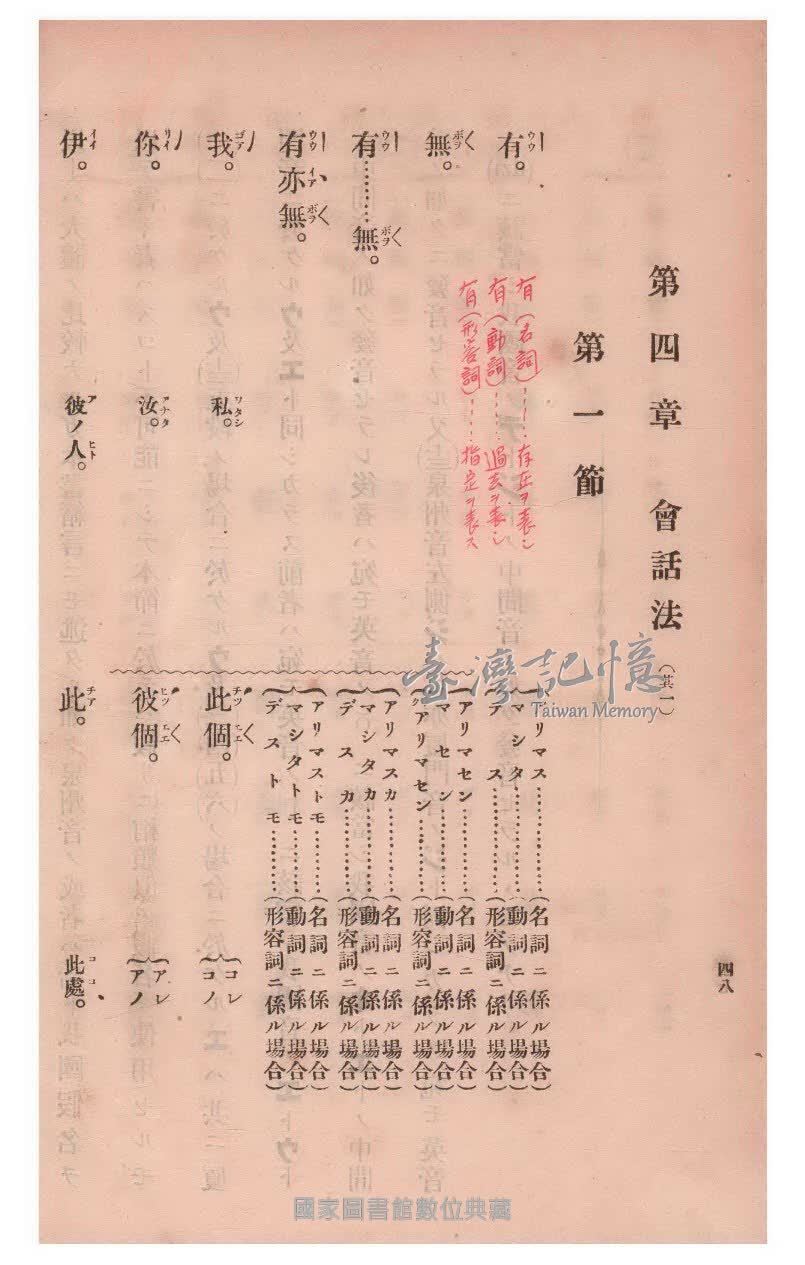 第四章 會話法(其一)
第一節
有。 ウウ
アリマス…………(名詞ニ係ル場合)
マシタ…………(動詞ニ係ル場合)
デス…………(形容詞ニ係ル場合)
有(名詞)……存在ヲ表シ
有(動詞)……過去ヲ表シ
有(形容詞)……指定ヲ表ス
無。 ボヲ
アリマセン…………(名詞ニ係ル場合)
マセン…………(動詞ニ係ル場合)
クアリマセン…………(形容詞ニ係ル場合)
有………無。 ウウ ボヲ
アリマスカ…………(名詞ニ係ル場合)
マシタカ…………(動詞ニ係ル場合)
デスカ…………(形容詞ニ係ル場合)
有亦無。 ウウ イア ボヲ
アリマストモ…………(名詞ニ係ル場合)
マシタトモ…………(動詞ニ係ル場合)
デストモ…………(形容詞ニ係ル場合)
我。 ゴア
私。 ワタシ
你。 リイ
汝。 アナタ
伊。 イイ
彼ノ人。 ア ヒト
此個。 チツ エ
コレ
コノ
彼個。 ヒツ エ
アレ
アノ
此。 チア
此處。 ココ
四八
臺灣記憶
Taiwan Memory
國家圖書館數位典藏